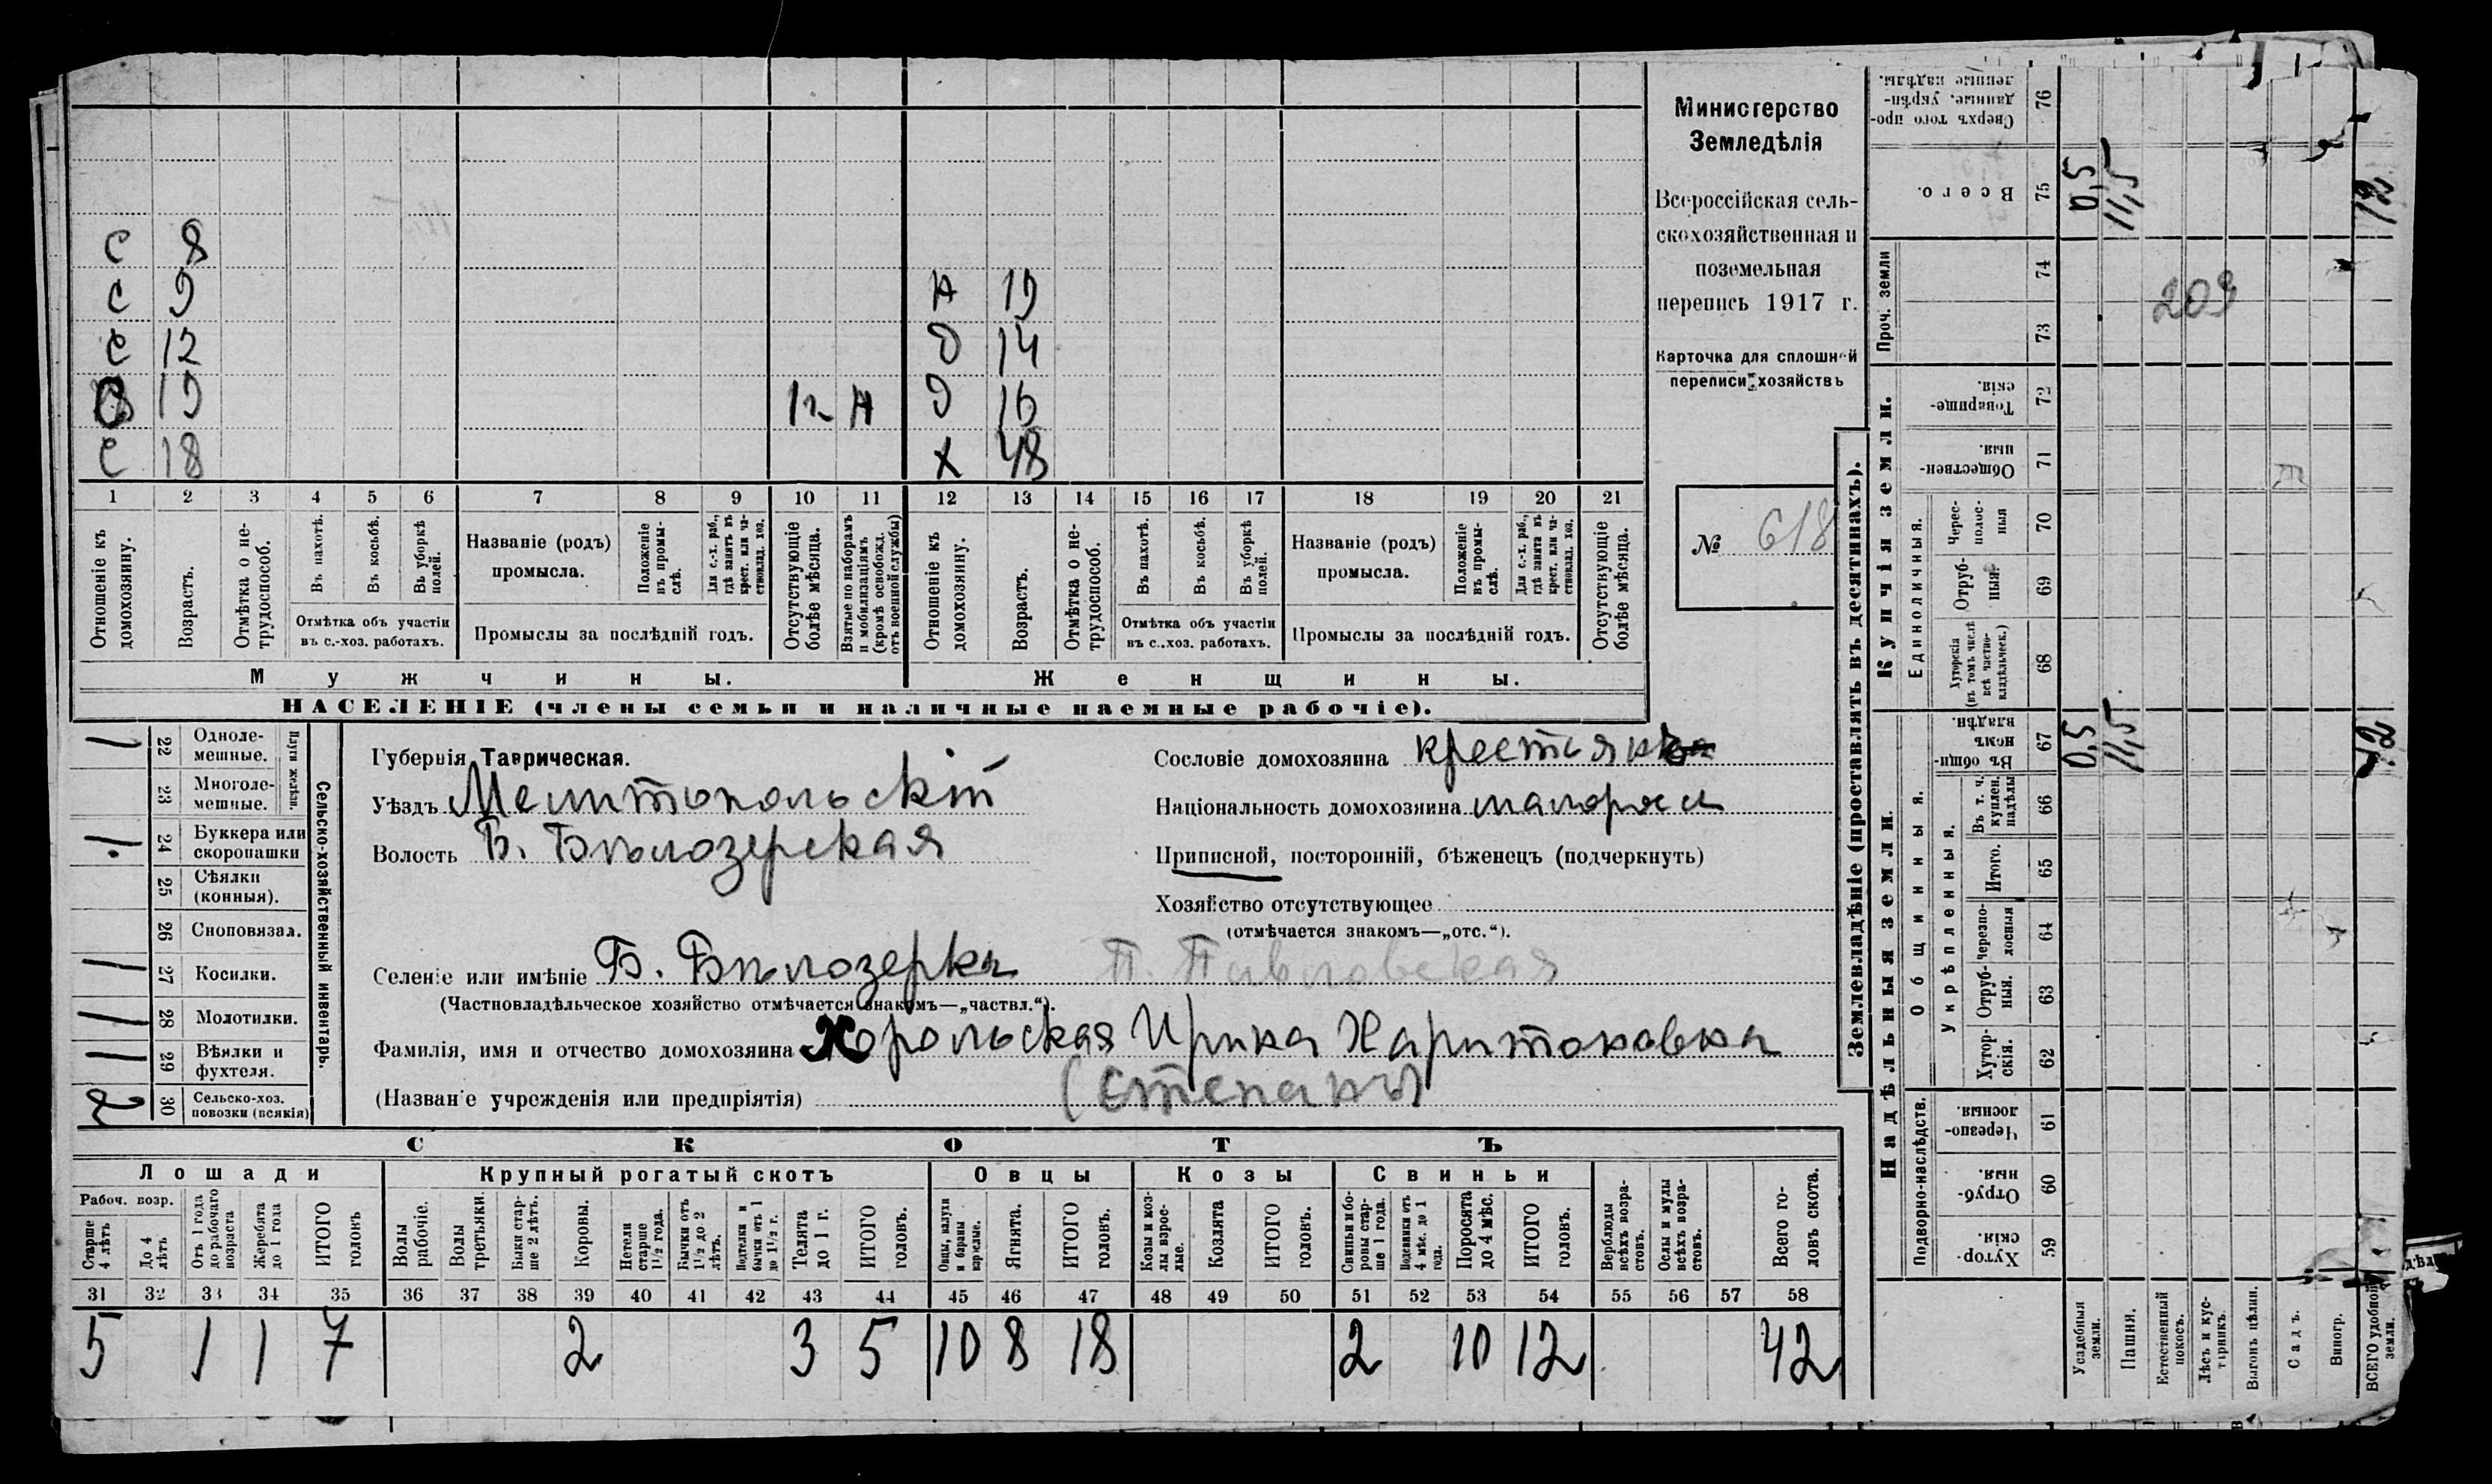 С 8
С 9 Н 19
С 12 Д 14
19 12 Н Д 16
С 18 Х 48
1 2 3 4 5 6 7 8 9 10 11 12 13 14 15 16 17 18 19 20 21
Отношеніе къ домохозяину.
Возрастъ.
Отмѣтка о не-трудоспособ.
Въ пахотѣ.
Въ косьбѣ.
Въ уборкѣ полей.
Отмѣтка объ участіи въ с.-хоз. работахъ.
Названіе (родъ) промысла.
Положеніе въ промы-слѣ.
Для с.-х. раб., гдѣ занятъ въ крест. или ча-стновлад. хоз.
Промыслы за послѣдній годъ.
Отсутствующіе болѣе мѣсяца.
Взятые по наборамъ и мобилизаціямъ (кромѣ освобожд. отъ военной службы)
Отношеніе къ домохозяину.
Возрастъ.
Отмѣтка о не-трудоспособ.
Въ пахотѣ.
Въ косьбѣ.
Въ уборкѣ полей.
Отмѣтка объ участіи въ с.-хоз. работахъ.
Названіе (родъ) промысла.
Положеніе въ промы-слѣ.
Для с.-х. раб., гдѣ занята въ крест. или ча-стновлад. хоз.
Промыслы за послѣдній годъ.
Отсутствующіе болѣе мѣсяца.
Мужчины. Женщины.
НАСЕЛЕНІЕ (члены семьи и наличные наемные рабочіе).
Министерство
Земледѣлія
Всероссійская сель-
скохозяйственная и
поземельная
перепись 1917 г.
Карточка для сплошной
переписи хозяйствъ
№ 618
Сельско-хозяйственный инвентарь.
Плуги желѣзн.
1 22 Одноле-мешные.
23 Многоле-мешные.
1 24 Буккера или скоропашки
25 Сѣялки (конныя).
26 Сноповязал.
1 27 Косилки.
1 28 Молотилки.
1 29 Вѣялки и фухтеля.
2 30 Сельско-хоз. повозки (всякія)
Губернія Таврическая.
Уѣздъ Мелитопольскій
Волость Б. Бѣлозерская
Селеніе или имѣніе Б. Бѣлозерка П. Павловская
(Частновладѣльческое хозяйство отмѣчается знакомъ—„частвл.“).
Фамилія, имя и отчество домохозяина Хорольская Ирина Харитоновна
(Названіе учрежденія или предпріятія) (Степаны)
Сословіе домохозяина крестьянка
Національность домохозяина малоросс
Приписной, посторонній, бѣженецъ (подчеркнуть)
Хозяйство отсутствующее
(отмѣчается знакомъ—„отс.“).
СКОТЪ
Лошади Крупный рогатый скотъ Овцы Козы Свиньи
Рабоч. возр.
Старше 4 лѣтъ
До 4 лѣтъ
Отъ 1 года до рабочаго возраста
Жеребята до 1 года
ИТОГО головъ
Волы рабочіе.
Волы третьяки.
Быки стар-ше 2 лѣтъ.
Коровы.
Нетели старше 1½ года.
Бычки отъ 1½ до 2 лѣтъ.
Подтелки и бычки отъ 1 до 1½ г.
Телята до 1 г.
ИТОГО головъ.
Овцы, валухи и бараны взрослые.
Ягнята.
ИТОГО головъ.
Козы и коз-лы взрос-лые.
Козлята
ИТОГО головъ.
Свиньи и бо-ровы стар-ше 1 года.
Подсвинки отъ 4 мѣс. до 1 года.
Поросята до 4 мѣс.
ИТОГО головъ.
Верблюды всѣхъ возра-стовъ.
Ослы и мулы всѣхъ возра-стовъ.
Всего го-ловъ скота.
31 32 33 34 35 36 37 38 39 40 41 42 43 44 45 46 47 48 49 50 51 52 53 54 55 56 57 58
5 1 1 7 2 3 5 10 8 18 2 10 12 42
Землевладѣніе (проставлять въ десятинахъ).
Купчія земли.
Надѣльныя земли.
Сверхъ того про-данные, укрѣп-ленные надѣлы. 76
Всего. 75 0,5 11,5 12
Проч. земли 74 73
209
Товарище-скія. 72
Обществен-ныя. 71
Единоличныя.
Черес-полос-ныя 70
Отруб-ныя. 69
Хуторскія (въ томъ числѣ всѣ частно-владѣльческ.) 68
Общинныя.
Въ общи-номъ владѣн. 67 0,5 11,5 12
Укрѣпленныя.
Въ т. ч. куплен. надѣлы 66
Итого. 65
Черезпо-лосныя 64
Отруб-ныя. 63
Хутор-скія. 62
Подворно-наслѣдств.
Черезпо-лосныя. 61
Отруб-ныя. 60
Хутор-скія. 59
Усадебныя земли.
Пашня.
Естественный покосъ.
Лѣсъ и кус-тарникъ.
Выгонъ цѣлин.
Садъ.
Виногр.
ВСЕГО удобной земли.